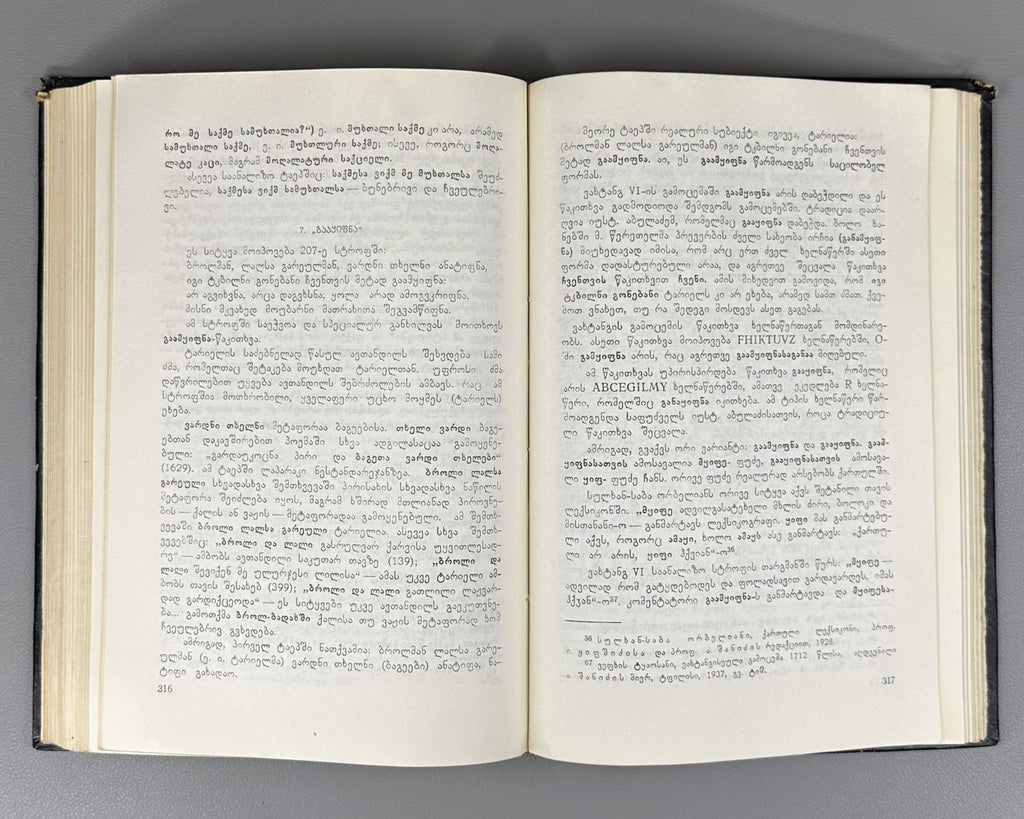 რო მე საქმე სამუხთალია?“) ე. ი. მუხთალი საქმე კი არა, არამედ
სამუხთალი საქმე, ე. ი. მუხთლური საქმე; ისევე, როგორც მოღა-
ლატე კაცი, მაგრამ მოღალატური საქციელი.
ასევეა საანალიზო ტაეპშიც: საქმესა ვიქმ მე მუხთალსა შეუძ-
ლებელია, საქმესა ვიქმ სამუხთალსა — ბუნებრივი და ჩვეულებრი-
ვი.
7. „გააყიფნა“
ეს სიტყვა მოიპოვება 207-ე სტროფში:
ბროლმან, ლალსა გარეულმან, ვარდნი თხელნი ანატიფნა,
იგი ტკბილნი გონებანი ჩვენთვის მეტად გაამყიფნა:
არ აგვიხვნა, არცა დაგვხსნა, ყოლა არად ამოგვკრიფნა,
მისნი მკვახედ მოუბარნი მათრახითა შეგვამწიფნა.
ამ სტროფში საეჭვოა და სპეციალურ განხილვას მოითხოვს
გაამყიფნა-წაკითხვა.
ტარიელის საძებნელად წასულ ავთანდილს შეხვდება სამი
ძმა, რომელთაც შეტაკება მოუხდათ ტარიელთან. უფროსი ძმა
დაწვრილებით უყვება ავთანდილს შებრძოლების ამბავს. რაც ამ
სტროფშია მოთხრობილი, ყველაფერი უცხო მოყმეს (ტარიელს)
ეხება.
ვარდნი თხელნი მეტაფორაა ბაგეებისა. თხელი ვარდი ბაგე-
ებთან დაკავშირებით პოემაში სხვა ადგილასაცაა გამოყენე-
ბული: „გარდაუკოცნა პირი და ბაგეთა ვარდი თხელები“
(1629). ამ ტაეპში ლაპარაკი ნესტანდარეჯანზეა. ბროლი ლალსა
გარეული სხვადასხვა შემთხვევაში პირისახის სხვადასხვა ნაწილის
მეტაფორა შეიძლება იყოს, მაგრამ ხშირად მთლიანად პიროვნე-
ბის — ქალის ან ვაჟის — მეტაფორადაა გამოყენებული. ამ შემთხ-
ვევაში ბროლი ლალსა გარეული ტარიელია. ასევეა სხვა შემთხ-
ვევებშიც: „ბროლი და ლალი გასრულვარ ქარვისა უყვითლესად-
რე“ — ამბობს ავთანდილი საკუთარ თავზე (139); „ბროლი და
ლალი შევიქენ მე ულურჯესი ლილისა“ — ამას უკვე ტარიელი ამ-
ბობს თავის შესახებ (399); „ბროლი და ლალი გათლილი ლაჟვარ-
დად გარდიქცეოდა“ — ეს სიტყვები უკვე ავთანდილს გაეკუთვნე-
ბა... გამოთქმა ბროლ-ბადახში ქალისა თუ ვაჟის მეტაფორად ხომ
ჩვეულებრივ გვხვდება.
ამრიგად, პირველ ტაეპში ნათქვამია: ბროლმან ლალსა გარე-
ულმან (ე. ი. ტარიელმა) ვარდნი თხელნი (ბაგეები) ანატიფა, ნა-
ტიფი გახადაო.
316
მეორე ტაეპში რეალური სუბიექტი იგივეა, ტარიელია:
(ბროლმან ლალსა გარეულმან) იგი ტკბილნი გონებანი ჩვენთვის
მეტად გაამყიფნა. აი, ეს გაამყიფნა წარმოადგენს საცილობელ
ფორმას.
ვახტანგ VI-ის გამოცემაში გაამყიფნა არის დაბეჭდილი და ეს
წაკითხვა გადმოდიოდა შემდგომს გამოცემებში. ტრადიცია დაარ-
ღვია იუსტ. აბულაძემ, რომელმაც გააყიფნა დაბეჭდა. ბოლო ხა-
ნებში მ. წერეთელმა პრევერბის ძველი სახეობა ირჩია (განამყიფ-
ნა) მიუხედავად იმისა, რომ არც ერთ ძველ ხელნაწერში ასეთი
ფორმა დადასტურებული არაა, და აგრეთვე შეცვალა წაკითხვა
ჩვენთვის წაკითხვით ჩვენი. ამის მიხედვით გამოვიდა, რომ იგი
ტკბილნი გონებანი ტარიელს კი არ ეხება, არამედ სამთ ძმათ. ქვე-
მოთ ვნახეთ, თუ რა შედეგი მოსდევს ასეთ გაგებას.
ვახტანგის გამოცემის წაკითხვა ხელნაწერთაგან მომდინარე-
ობს. ასეთი წაკითხვა მოიპოვება FHIKTUVZ ხელნაწერებში, O-
ში გამყიფნა არის, რაც აგრეთვე გაამყიფნასაგანაა მიღებული.
ამ წაკითხვას უპირისპირდება წაკითხვა გააყიფნა, რომელიც
არის ABCEGILMY ხელნაწერებში, ამათვე ეკედლება R ხელნა-
წერი, რომელშიც განაყიფნა იკითხება. ამ ტიპის ხელნაწერი წარ-
მოადგენდა საფუძველს იუსტ. აბულაძისათვის, როცა ტრადიციუ-
ლი წაკითხვა შეცვალა.
ამრიგად, გვაქვს ორი ვარიანტი: გაამყიფნა და გააყიფნა. გაამ-
ყიფნასათვის ამოსავალია მყიფე- ფუძე, გააყიფნასათვის ამოსავა-
ლი ყიფ- ფუძე ჩანს. ორივე ფუძე რეალურად არსებობს ქართულში.
სულხან-საბა ორბელიანს ორივე სიტყვა აქვს შეტანილი თავის
ლექსიკონში. „მყიფე ადვილგასატეხელი მხლის ძირი, ბოლოკი და
მისთანანი-ო — განმარტავს ლექსიკოგრაფი. ყიფი მას განმარტებუ-
ლი აქვს, როგორც ამაყი, ხოლო ამაყს ასე განმარტავს: „ქართუ-
ლი არ არის, ყიფი ჰქვიან“-ო³⁶.
ვახტანგ VI საანალიზო სტროფის თარგმანში წერს: „მყიფე —
ადვილად რომ გატყდებოდეს და ფოლადსავით გარდავარდეს, იმას
ჰქჳან“-ო³⁷. კომენტატორი გაამყიფნა-ს განმარტავდა და მყიფესა-
36 სულხან-საბა ორბელიანი, ქართული ლექსიკონი, პროფ.
ი. ყიფშიძისა და პროფ. ა. შანიძის რედაქციით, 1928.
67 ვეფხის ტყაოსანი, ვახტანგისეული გამოცემა 1712 წლისა, აღდგენილი
ა. შანიძის მიერ, ტფილისი, 1937, გვ. ტიშ.
317